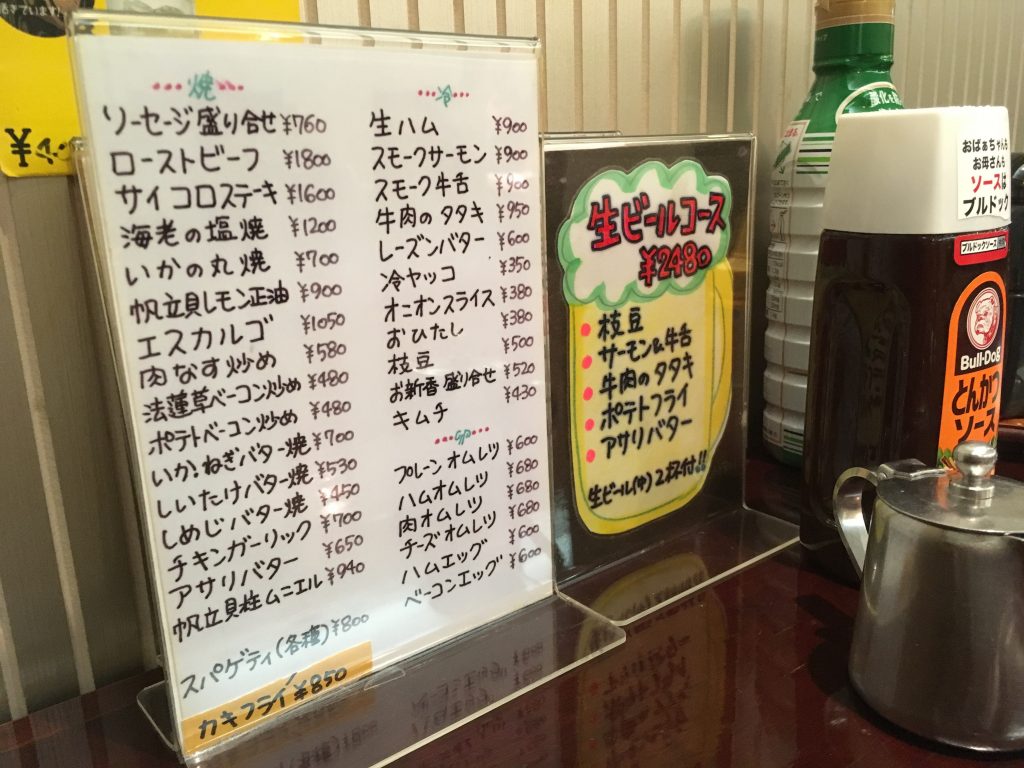 焼
ソーセージ盛り合せ ¥760
ローストビーフ ¥1800
サイコロステーキ ¥1600
海老の塩焼 ¥1200
いかの丸焼 ¥700
帆立貝レモン正油 ¥900
エスカルゴ ¥1050
肉なす炒め ¥580
法蓮草ベーコン炒め ¥480
ポテトベーコン炒め ¥480
いか、ねぎバター焼 ¥700
しいたけバター焼 ¥530
しめじバター焼 ¥450
チキンガーリック ¥700
アサリバター ¥650
帆立貝柱ムニエル ¥940
スパゲティ(各種) ¥800
カキフライ ¥850
冷
生ハム ¥900
スモークサーモン ¥900
スモーク牛舌 ¥900
牛肉のタタキ ¥950
レーズンバター ¥600
冷ヤッコ ¥350
オニオンスライス ¥380
おひたし ¥380
枝豆 ¥500
お新香盛り合せ ¥520
キムチ ¥430
卵
プレーンオムレツ ¥600
ハムオムレツ ¥680
肉オムレツ ¥680
チーズオムレツ ¥680
ハムエッグ ¥600
ベーコンエッグ ¥600
生ビールコース
¥2480
枝豆
サーモン&牛舌
牛肉のタタキ
ポテトフライ
アサリバター
生ビール(中)2杯付!!
おばぁちゃんも
お母さんも
ソースは
ブルドック
ブルドックソース
Bull-Dog
とんかつ
ソース